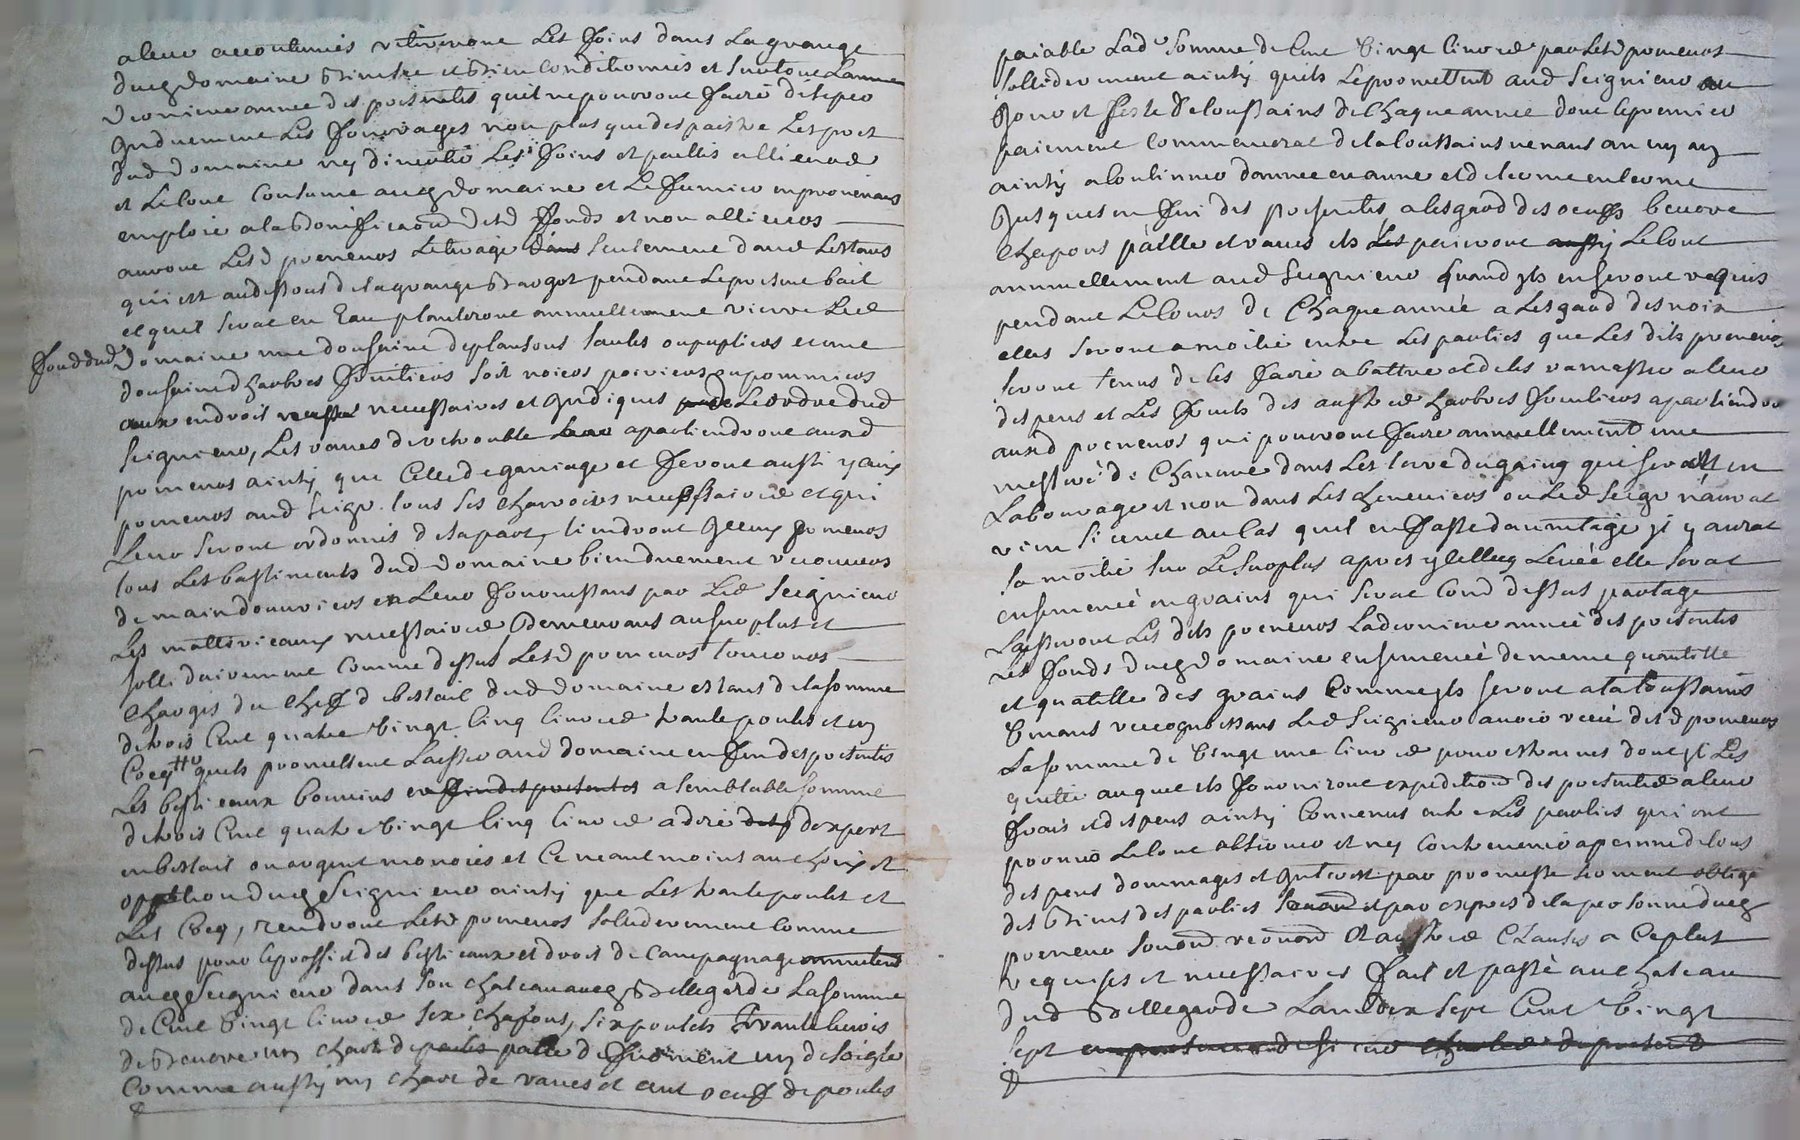 a leur accoutumés retireront Les foins dans La grange
dudg domaine et Bien conditionnés et surtout Lanne
derniere annee des presentes quil ne pourront faire
Les fourages non plus que des pais Les prets
dud domaine ny Les foins et pailles
et Le tout Consumé audg domaine et Le fumier en provenans
emploié a la Bonification desd fonds et non allieurs
auront Lesd preneurs Letivage seulement dans Lestans
qui est audessous de la grange Bragot pendant Le present bail
et quil serat en Eau planteront annuellement rierre Led
fond dud domaine une dousaine de plansons saules ou pupliers et une
dousaine dharbres fruitiers soit noiers poiriers ou pommiers
aux endroit necessaires et Lordre dud
seigneur, Les raves de retrouble apartiendront auxd
preneurs ainsy que Celle de ganiage et feront aussi yceux
preneurs aud seigr tous ses charrois necessaires et qui
Leur seront ordonnés de sa part, tiendront yceux preneurs
tous Les bastiments dud domaine bien duement recouvers
de main douvriers en Leur fournissans par Led Seigneur
Les matteriaux necessaires Demeurans au surplus et
sollidairemment comme dessus Lesd preneurs
Charges du cheff dbestail dud domaine estant de la somme
de trois Cent quatre Vingt Cinq Livres trante poules et un
Cocq quils promettent Laisser aud domaine en fin des presentes
Les bestieaux bouvins en fin des presentes a semblable somme
de trois Cent quatre Vingt Cinq Livres a dire dexpert
en bestail ou argent monoiés et Ce neantmoins au choix et
opption dudg Seigneur ainsy que Les trante poules et
Les Cocq, rendront Lesd preneurs solidairement comme
dessus pour Le proffit des bestieaux et droit de Campagnage
audg Seigneur dans son chateau audg Bellegarde La somme
de Cent Vingt Livres six chapons, six poulets trante Livres
de Beurre un chard de paille de froment un de seigle
Comme aussy un chard de raves et cent oeuff de poules
paiable Lad Somme de Cent Vingt Livres par Lesd preneurs
sollidairement ainsy quils Le promettent aud Seigneur au
Jour et feste de toussains de Chaque année dont Le premier
paiement commencerat de la toussains venans an un an
ainsy a continuer dannee en anne et de terme en terme
Jusques en fin des presentes, a lesgard des oeuffs beurre
Chapons paille et raves ils Les pairont aussy Le tout
annuellement aud Seigneur quand yls en seront requis
pendant Le Cours de Chaque année a Lesgard des noix
elles seront a moitié entre Les parties que Les dits preneurs
seront tenus de les faire abattre et de les ramasser a leur
despens et Les fruits des autres harbres fruitiers apartiendr
auxd preneurs qui pourront faire annuellement une
messure de Chanvre dans Les terre dugaing qui serat en
Labourage et non dans Les chenevieres ou Led Seigr naurat
rien si cenest au Cas quil en fasse daventage yl y aurat
sa moitié sur Le surplus apres ycelluy Levée elle serat
ensemencé en grains qui serat Comme dessus partage
Laisseront Les dits preneurs La derniere année des presentes
Les fonds dudg domaine ensemencé de meme quantitté
et quatitte des grains Comme yls seront a la toussains
Venans recognoissans Led Seigneur avoir receu desd preneurs
La somme de Vingt une Livre pour estraines dont yl Les
quitte auquel ils fourniront expedition des presentes a leur
frais et despens ainsy Convenus entre Les parties qui ont
promis Le tout observer et ny Contrevenir a peinne de tous
despens dommages et par promesse serment oblige
des Biens des parties et par expres de la personne dudg
preneur soumon renond Et autres Clauses a Ce plus
requises et necessaires fait et passé au Chateau
dud Bellegarde Lan Mil Sept Cent Vingt
sept